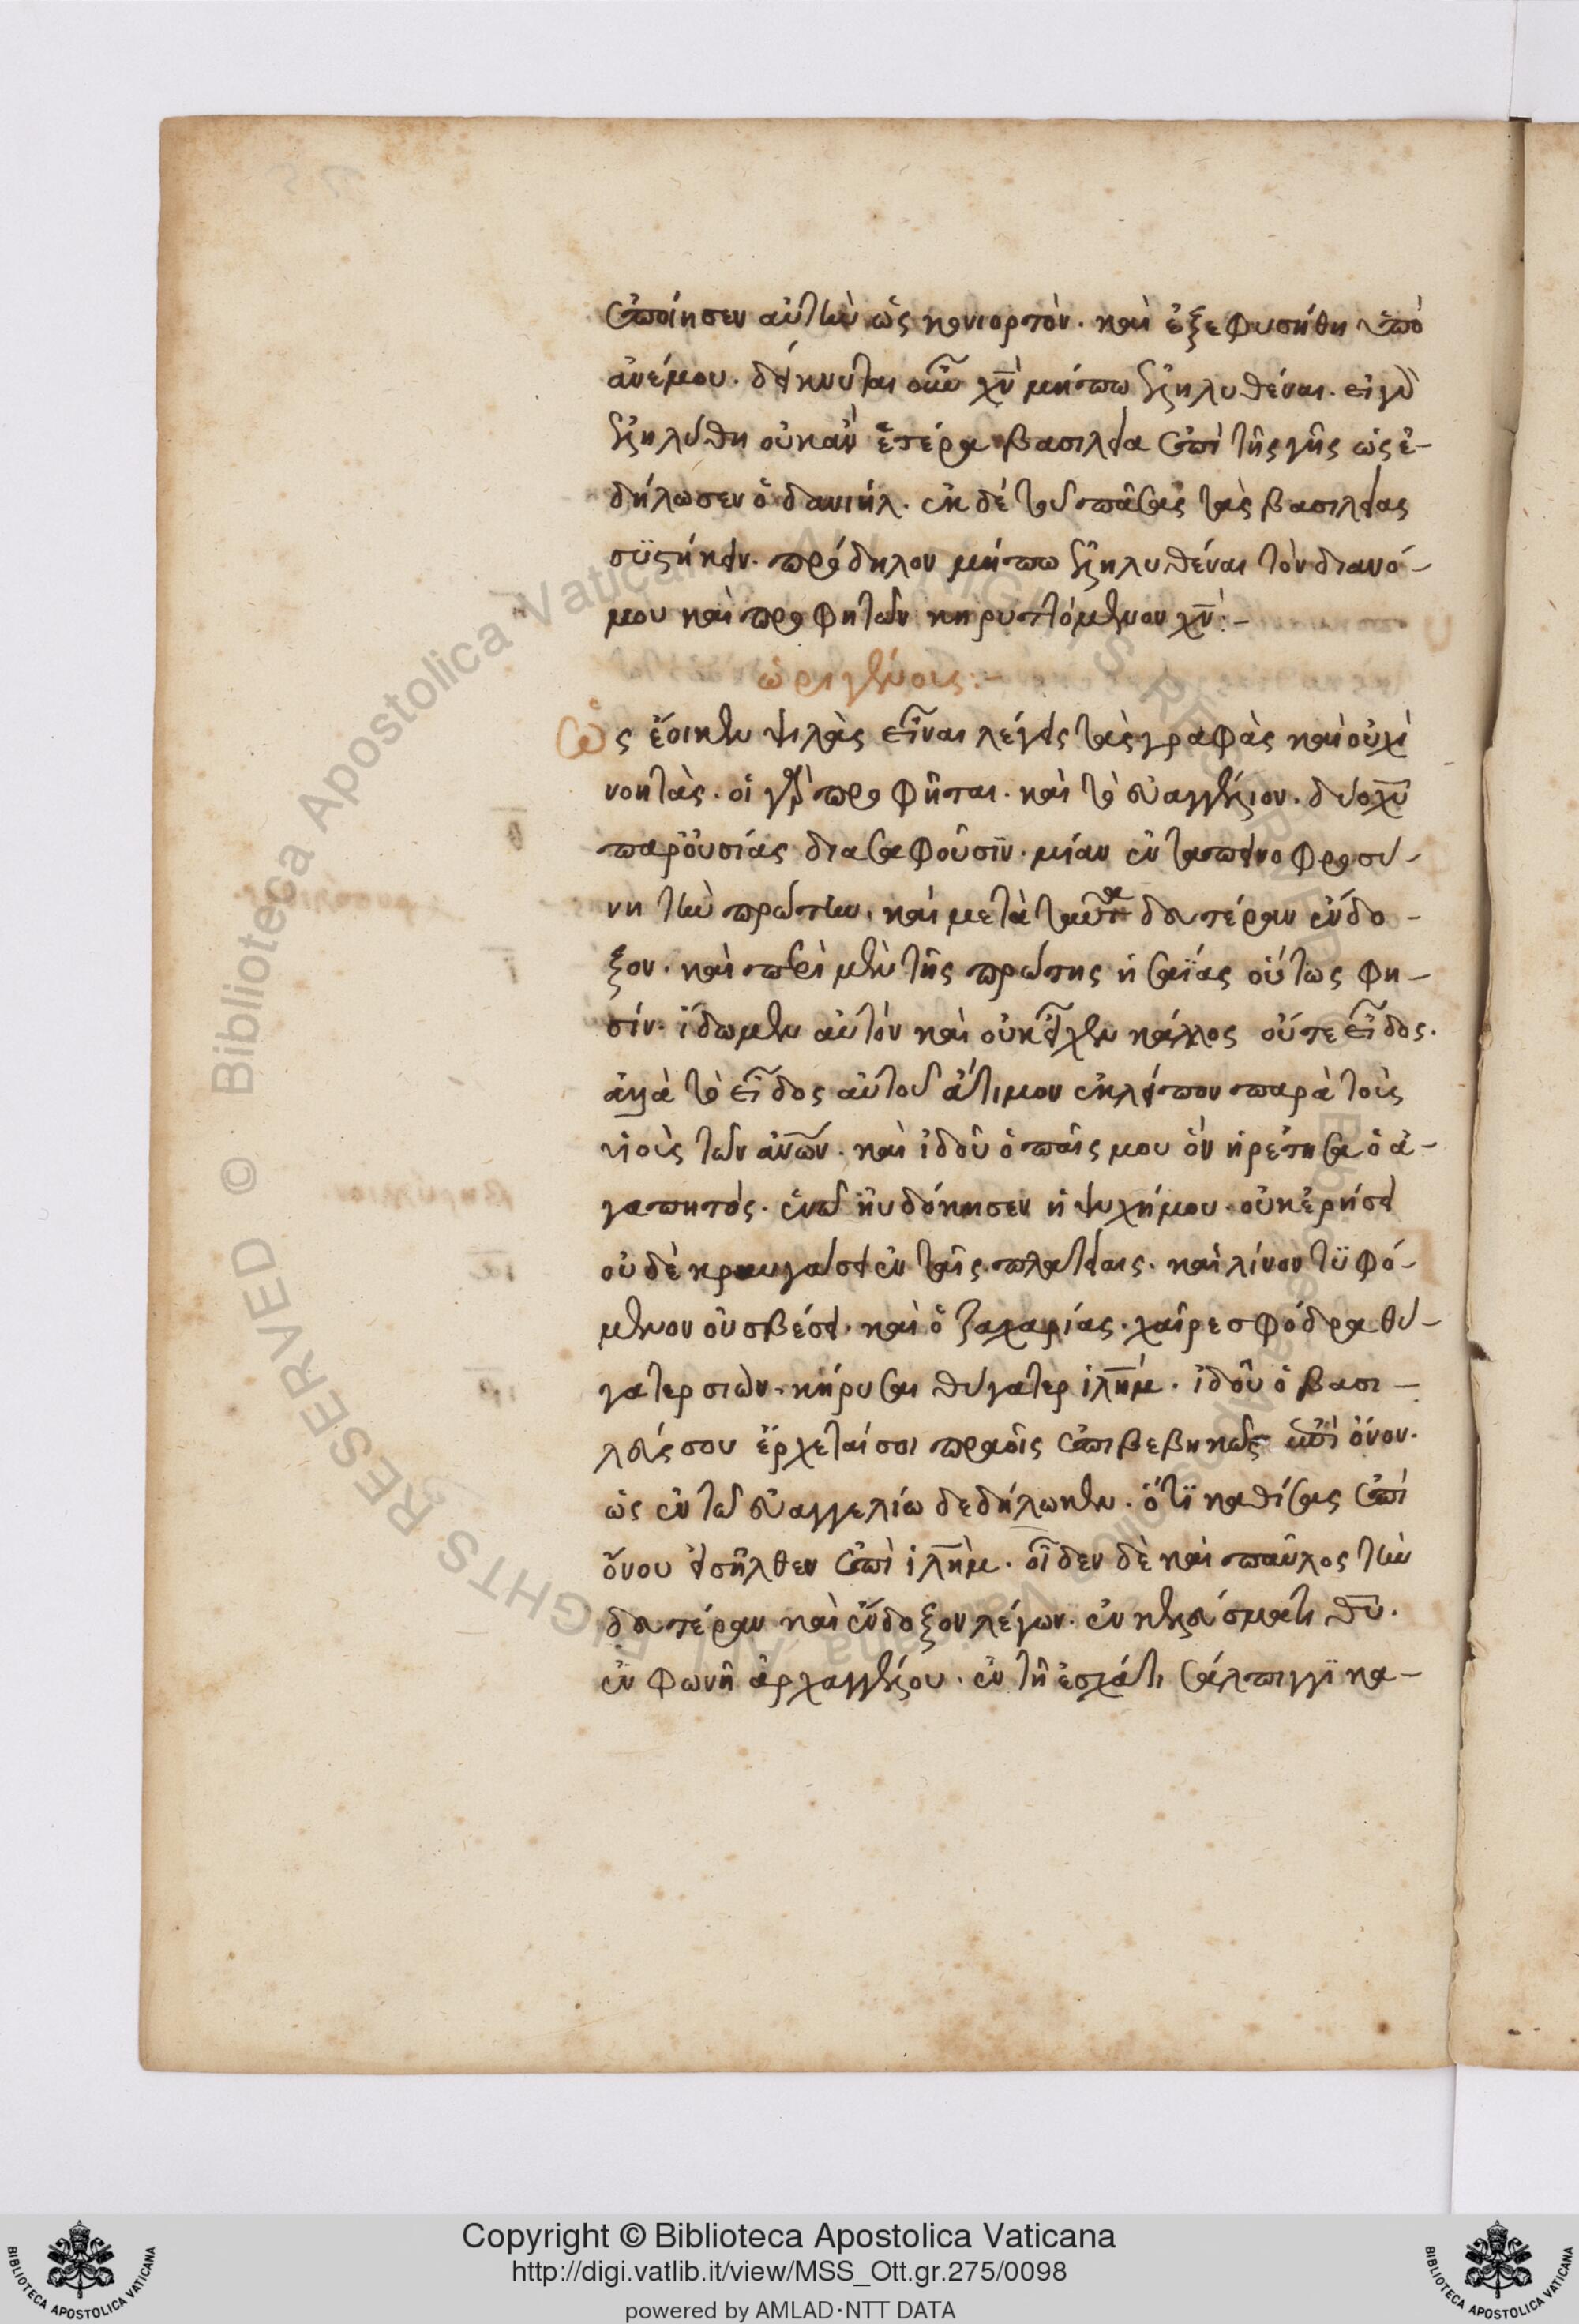 ἐποίησεν αὐτὴν ὡς κονιορτὸν. καὶ ἐξεφυσήθη ὑπὸ
ἀνέμου. δείκνυται οὖν χν̅ μήπω ἐληλυθέναι. εἰ γὰρ
ἐληλύθη οὐκ ἂν ἑτέρα βασιλεία ἐπὶ τῆς γῆς ὡς ἐ-
δήλωσεν ὁ δανιήλ. ἐκ δὲ τοῦ πάσας τὰς βασιλείας
συϊστήκειν. πρόδηλον μήπω ἐληλυθέναι τὸν διὰ νό-
μου καὶ προφητῶν κηρυττόμενον χν̅:-
ὠριγένους:-
Ὡς ἔοικεν ψιλὰς εἶναι λέγεις τὰς γραφὰς καὶ οὐχὶ
νοητὰς. οἱ γὰρ προφῆται. καὶ τὸ εὐαγγέλιον. δύο χυ̅
παρουσίας διασαφοῦσϊν. μίαν ἐν ταπεινοφροσύ-
νη τὴν πρώτην. καὶ μετὰ ταῦτα δευτέραν ἔνδο-
ξον. καὶ περὶ μὲν τῆς πρώτης ἡσαΐας οὕτως φη-
σίν. ἴδωμεν αὐτόν καὶ οὐκ εἶχεν κάλλος οὔτε εἶδος.
ἀλλὰ τὸ εἶδος αὐτοῦ ἄτιμον ἐκλείπον παρὰ τοὺς
υἱοὺς τῶν ἀν̅ων. καὶ ἰδοὺ ὁ παῖς μου ὃν ἡρέτησα ὁ ἀ-
γαπητός. ἐν ὧ ηὐδόκησεν ἡ ψυχήμου. οὐκ ἐρήσει
οὐδὲ κραυγάσει ἐν ταῖς πλατείαις. καὶ λίνον τϋφό-
μενον οὐ σβέσει. καὶ ὁ ζαχαρίας. χαῖρε σφόδρα θύ-
γατερ σιὼν. κήρυσαι θύγατερ ἱλη̅μ. ἰδοὺ ὁ βασι-
λεύς σου ἔρχεταί σοι πραῢς ἐπιβεβηκὼς ἐπὶ ὄνον.
ὡς ἐν τῶ εὐαγγελίω δεδήλωκεν. ὅτϊ καθίσας ἐπὶ
ὄνου εἰσῆλθεν ἐπὶ ἱλη̅μ. οἶδεν δὲ καὶ παῦλος τὴν
δευτέραν καὶ ἔνδοξον λέγων. ἐν κελεύσματι θυ̅.
ἐν φωνῆ ἀρχαγγέλου. ἐν τῆ ἐσχάτη σάλπιγγϊ κα-
Copyright © Biblioteca Apostolica Vaticana
http://digi.vatlib.it/view/MSS_Ott.gr.275/0098
powered by AMLAD·NTT DATA
BIBLIOTECA APOSTOLICA VATICANA
BIBLIOTECA APOSTOLICA VATICANA